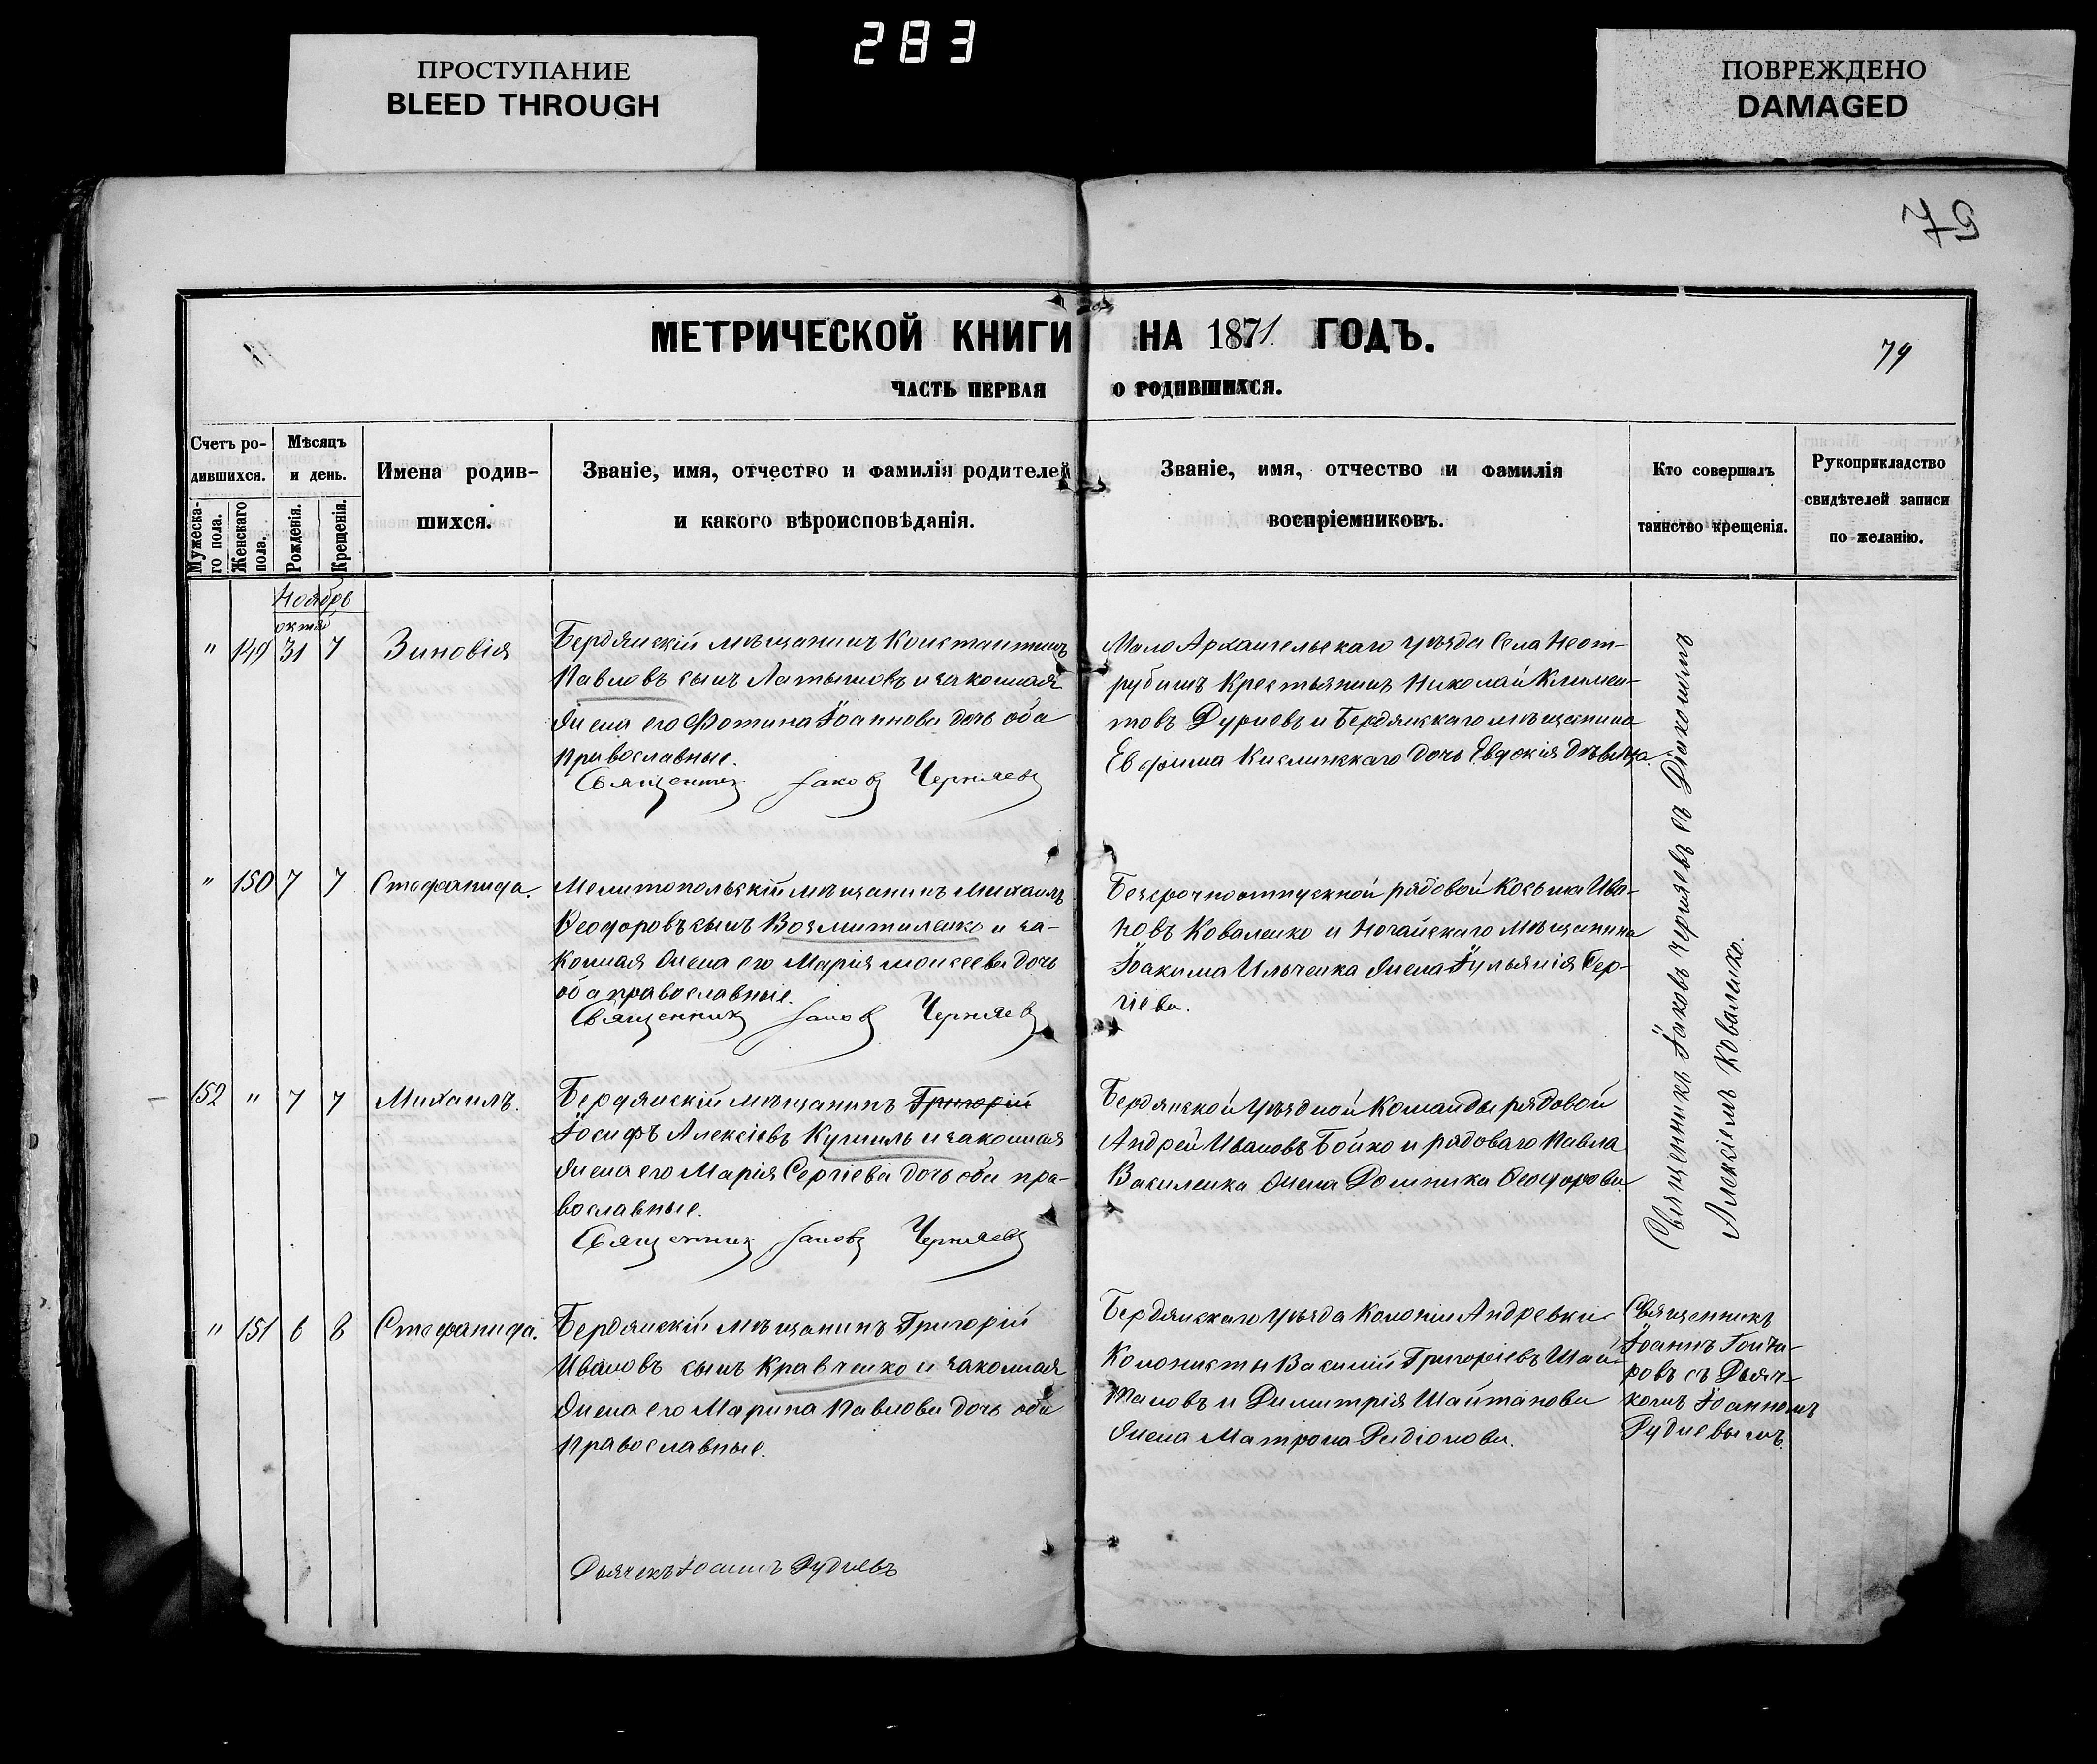 283
ПРОСТУПАНИЕ
BLEED THROUGH
ПОВРЕЖДЕНО
DAMAGED
75
МЕТРИЧЕСКОЙ КНИГИ НА 1871 ГОДЪ.
79
ЧАСТЬ ПЕРВАЯ О РОДИВШИХСЯ.
Счетъ ро-
дившихся.
Мужеска-
го пола.
Женскаго
пола.
Мѣсяцъ
и день.
Рожденія.
Крещенія.
Имена родив-
шихся.
Званіе, имя, отчество и фамилія родителей
и какого вѣроисповѣданія.
Званіе, имя, отчество и фамилія
воспріемниковъ.
Кто совершалъ
таинство крещенія.
Рукоприкладство
свидѣтелей записи
по желанію.
Ноябрь
октяб
" 149 31 7 Зиновія
Бердянскій мѣщанинъ Константинъ
Павловъ сынъ Латышовъ и законная
жена его Фотина Іоаннова дочь оба
православные.
Священникъ Іаковъ Черняевъ
Мало Архангельскаго уѣзда села Неот-
рубишъ Крестьянинъ Николай Климен-
товъ Дурневъ и Бердянскаго мѣщанина
Евфима Кислинскаго дочь Евдокія дѣвица.
" 150 7 7 Стефанида.
Мелитопольскій мѣщанинъ Михаилъ
Ѳеодоровъ сынъ Возмитиленко и за-
конная жена его Марія Моисеева дочь
оба православные.
Священникъ Іаковъ Черняевъ
Безсрочноотпускной рядовой Косьма Ива-
новъ Коваленко и Ногайскаго мѣщанина
Іоакима Ильченка жена Іульянія Сер-
гіева.
152 " 7 7 Михаилъ.
Бердянскій мѣщанинъ Григорій
Іосифъ Алексіевъ Кушниль и законная
жена его Марія Сергіева дочь оба пра-
вославные.
Священникъ Іаковъ Черняевъ
Бердянской уѣздной Команды рядовой
Андрей Ивановъ Бойко и рядоваго Павла
Василенка жена Домника Ѳеодорова
Священникъ Іаковъ Черняевъ съ Діакономъ
Алексіемъ Коваленко.
" 151 6 8 Стефанида.
Бердянскій мѣщанинъ Григорій
Ивановъ сынъ Кравченко и законная
жена его Марина Павлова дочь оба
православные.
Бердянскаго уѣзда Колоніи Андревки
Колонисты Василій Григоріевъ Шай-
тановъ и Димитрія Шайтанова
жена Матрона Родіонова.
Священникъ
Іоаннъ Гонча-
ровъ съ Дьяч-
комъ Іоанномъ
Рудневымъ.
Дьячекъ Іоаннъ Рудневъ